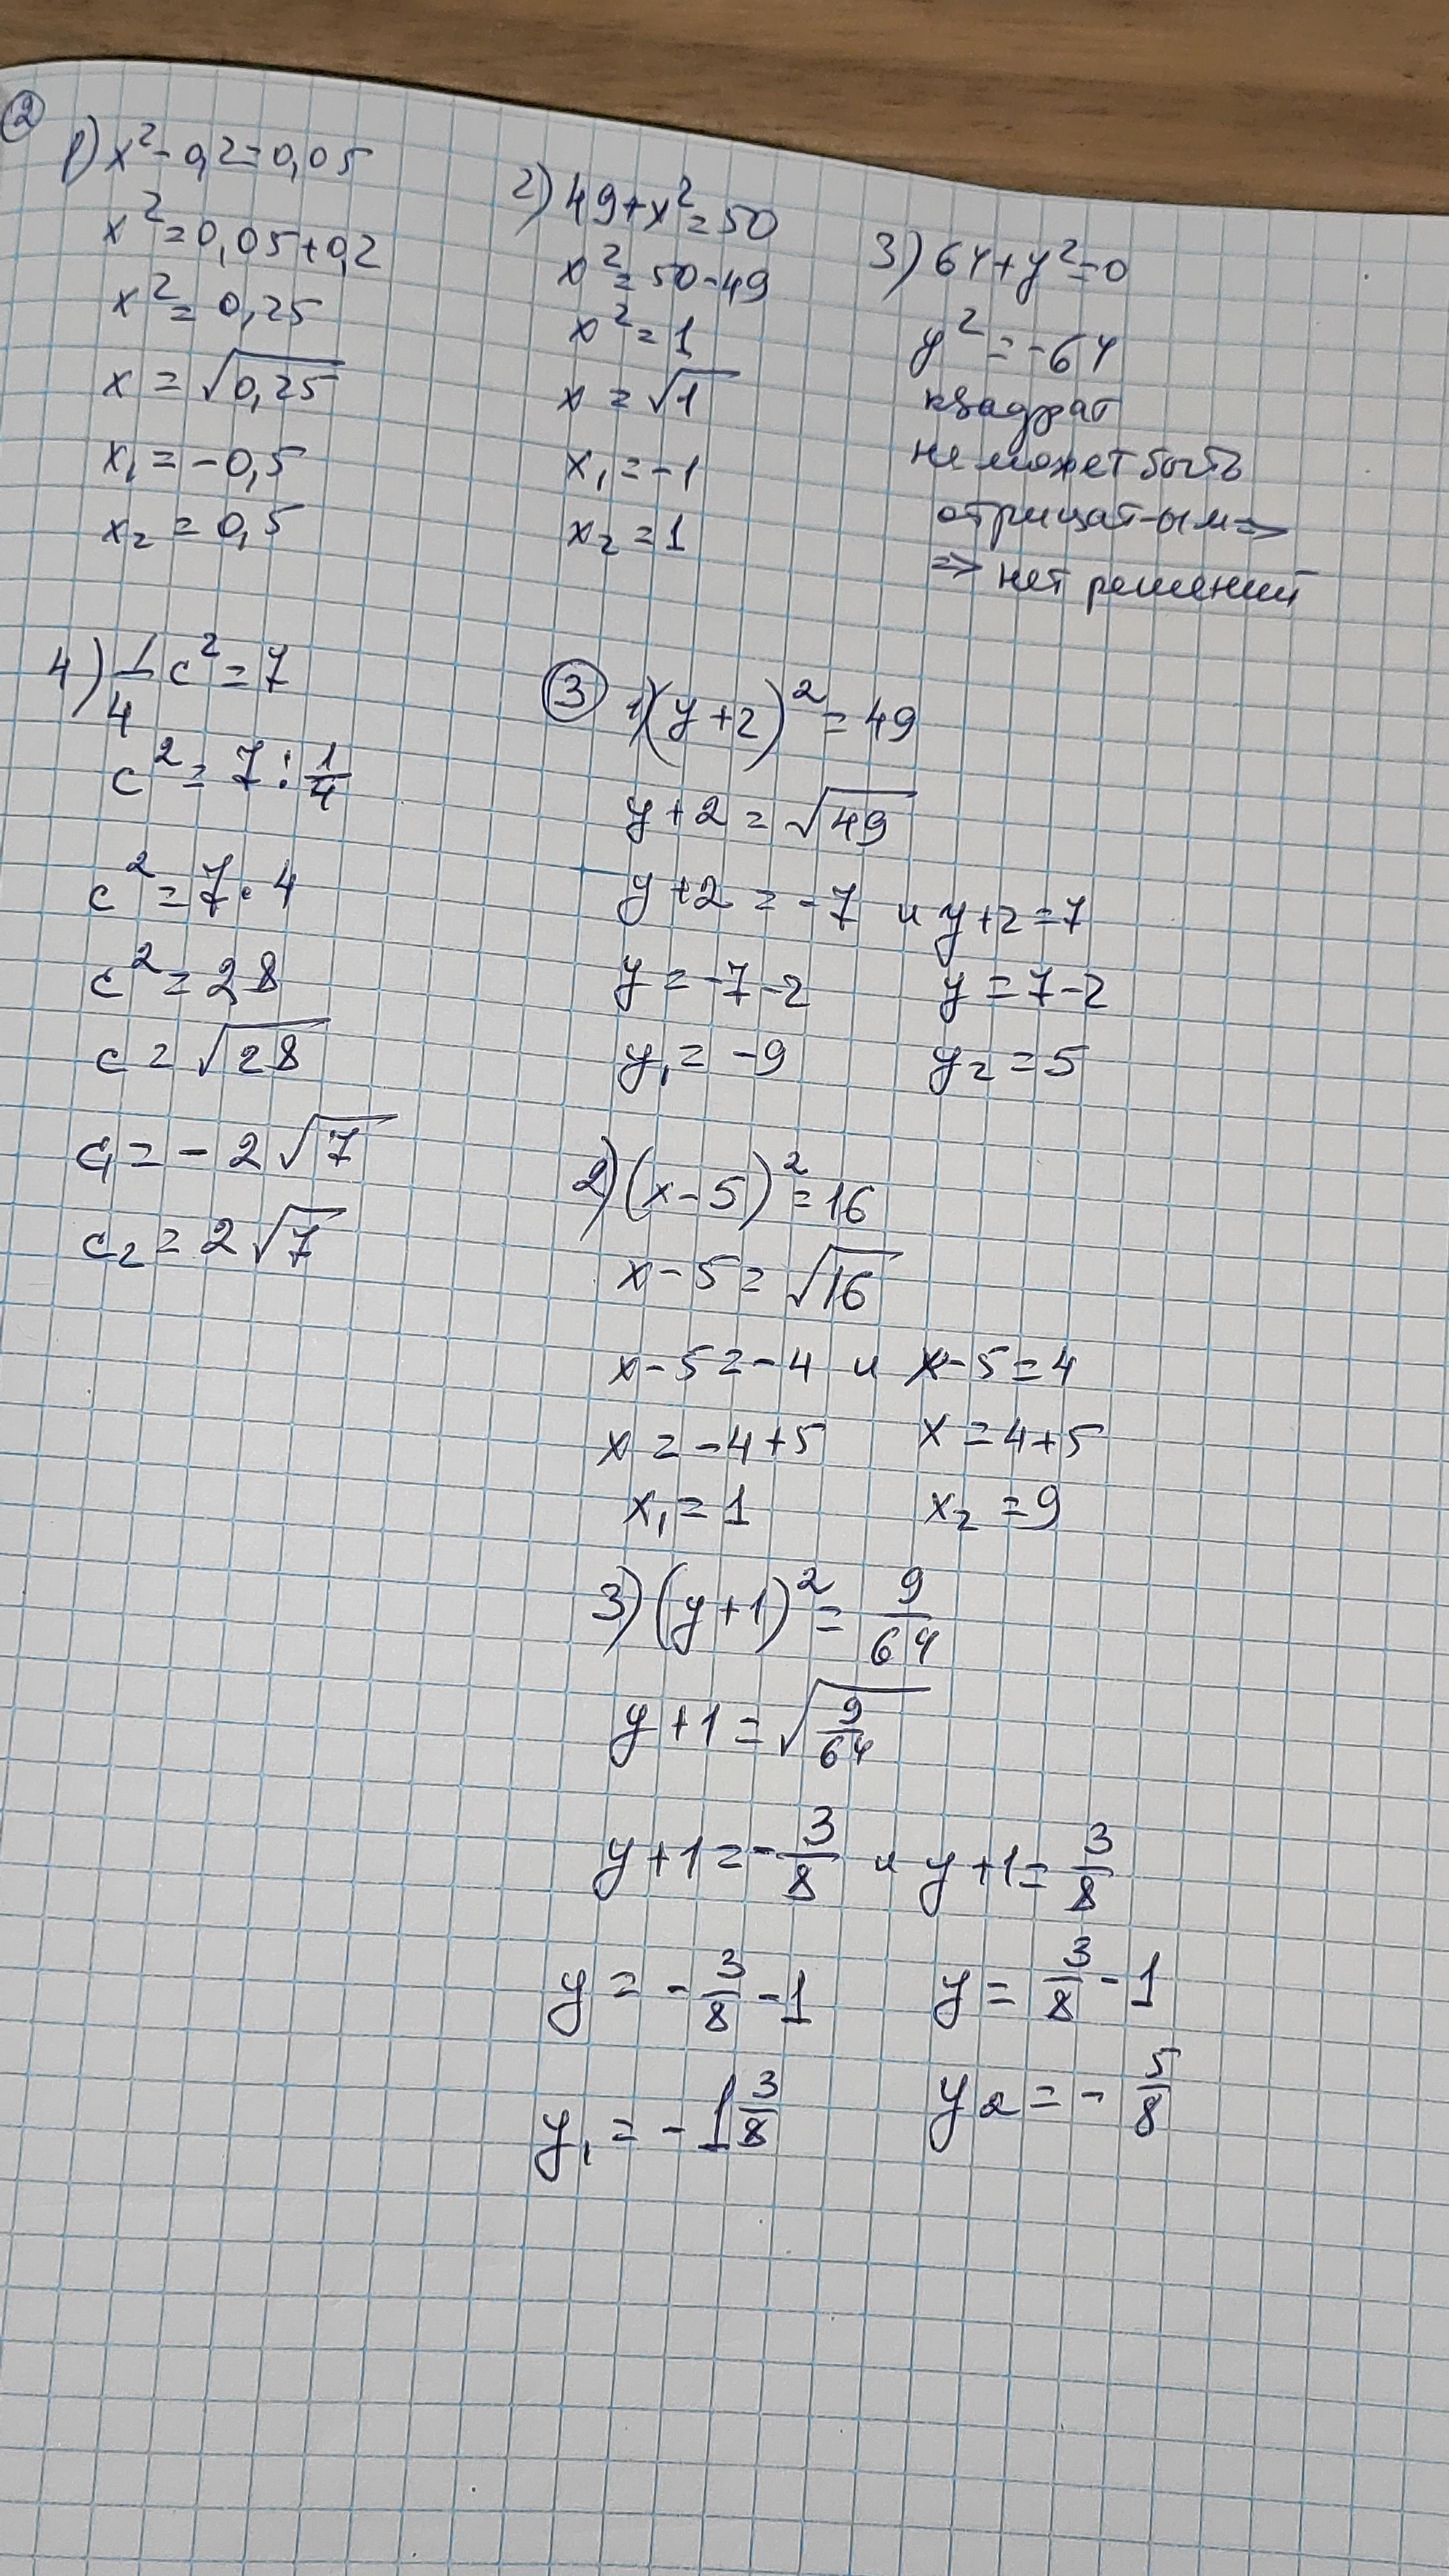 ②
1) x² - 0,2 = 0,05
x² = 0,05 + 0,2
x² = 0,25
x = √0,25
x₁ = -0,5
x₂ = 0,5
2) 49 + x² = 50
x² = 50 - 49
x² = 1
x = √1
x₁ = -1
x₂ = 1
3) 64 + y² = 0
y² = -64
квадрат
не может быть
отрицат-ым =>
=> нет решений
4) 1/4 c² = 7
c² = 7 : 1/4
c² = 7 · 4
c² = 28
c = √28
c₁ = - 2√7
c₂ = 2√7
③ 1) (y + 2)² = 49
y + 2 = √49
y + 2 = -7 и y + 2 = 7
y = -7 - 2 y = 7 - 2
y₁ = -9 y₂ = 5
2) (x - 5)² = 16
x - 5 = √16
x - 5 = -4 и x - 5 = 4
x = -4 + 5 x = 4 + 5
x₁ = 1 x₂ = 9
3) (y + 1)² = 9/64
y + 1 = √9/64
y + 1 = - 3/8 и y + 1 = 3/8
y = - 3/8 - 1 y = 3/8 - 1
y₁ = - 1 3/8 y₂ = - 5/8